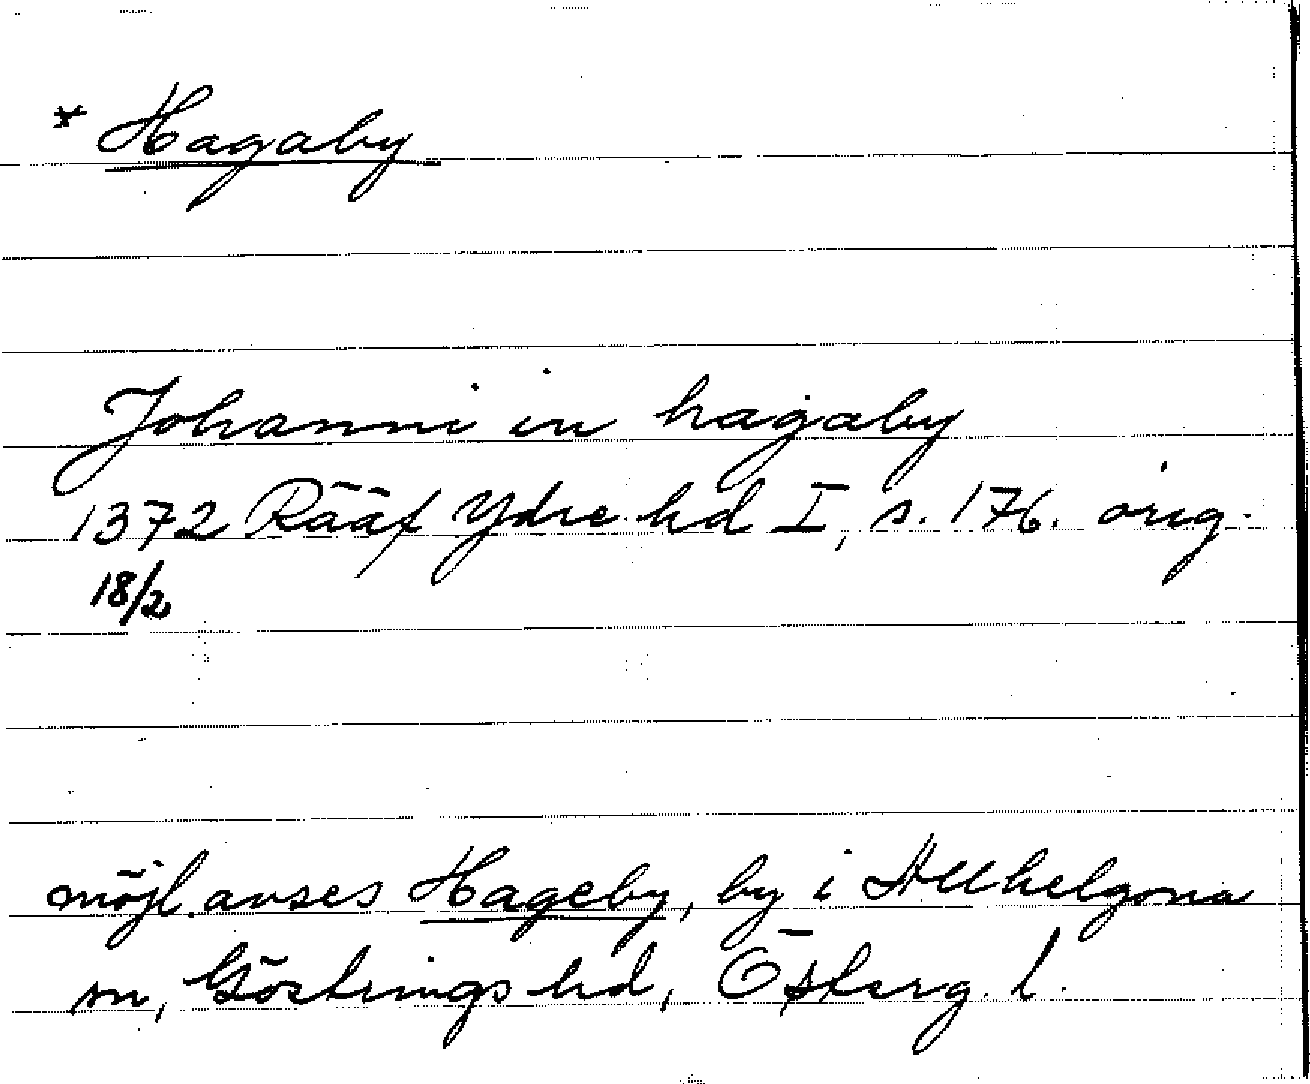 * Hagaby
Johanni in hagaby
1372 Rääf Ydre hd I, s. 176. orig.
18/2
möjl. avses Hageby, by i Allhelgona
sn, Göstrings hd, Österg. l.